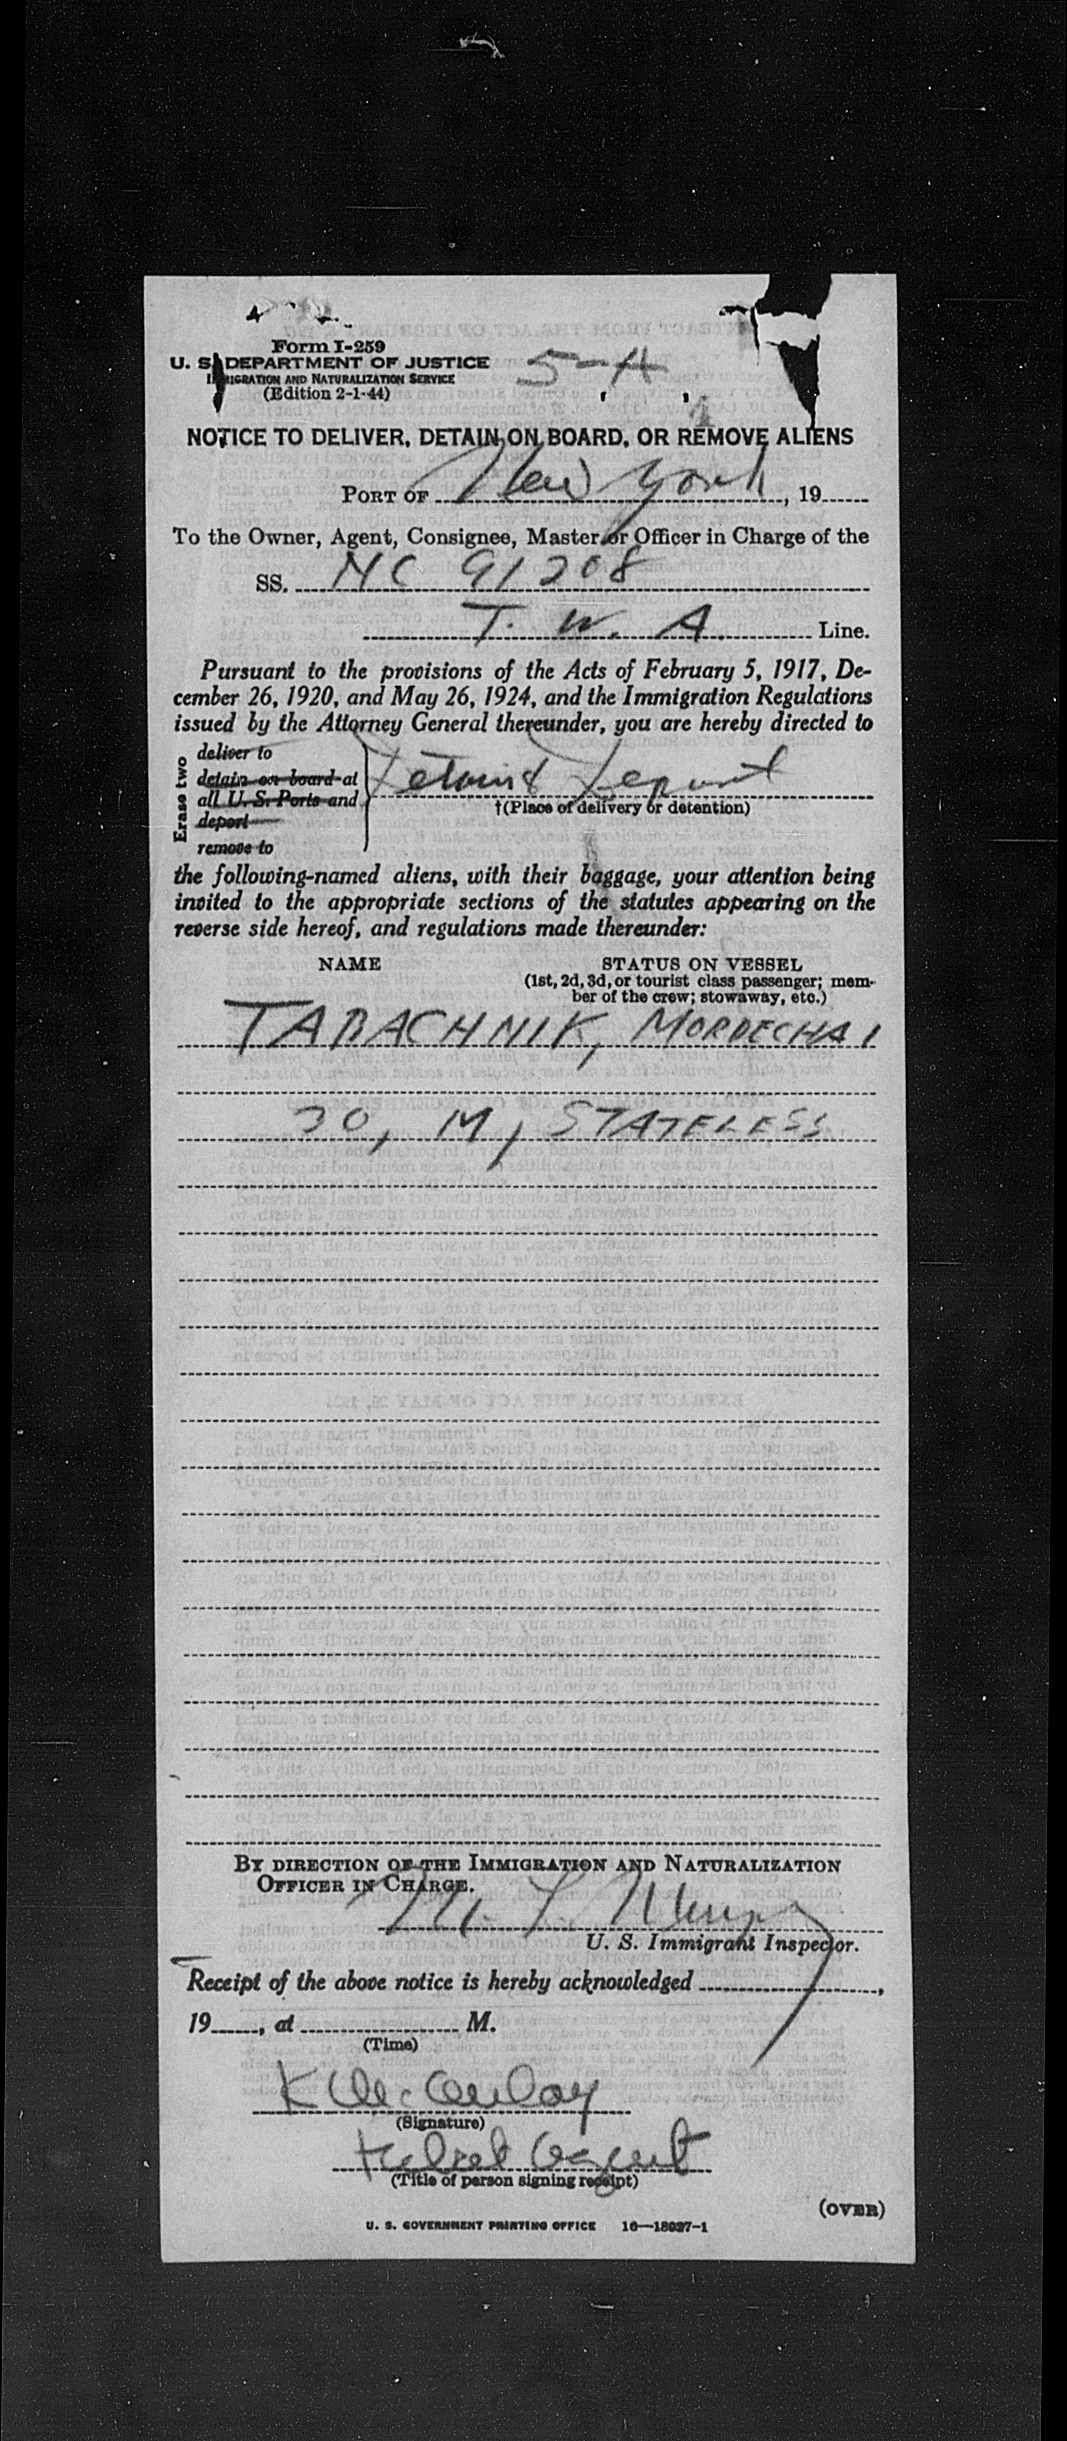 Form I-259
5-A
U. S. DEPARTMENT OF JUSTICE
IMMIGRATION AND NATURALIZATION SERVICE
(Edition 2-1-44)
NOTICE TO DELIVER, DETAIN ON BOARD, OR REMOVE ALIENS
PORT OF New York, 19
To the Owner, Agent, Consignee, Master or Officer in Charge of the
SS. NC 91208
T. W. A. Line.
Pursuant to the provisions of the Acts of February 5, 1917, De-
cember 26, 1920, and May 26, 1924, and the Immigration Regulations
issued by the Attorney General thereunder, you are hereby directed to
Erase two
deliver to
detain on board at
all U. S. Ports and
deport
remove to
Detain & Deport
†(Place of delivery or detention)
the following-named aliens, with their baggage, your attention being
invited to the appropriate sections of the statutes appearing on the
reverse side hereof, and regulations made thereunder:
NAME STATUS ON VESSEL
(1st, 2d, 3d, or tourist class passenger; mem-
ber of the crew; stowaway, etc.)
TABACHNIK, MORDECHAI
30, M, STATELESS
BY DIRECTION OF THE IMMIGRATION AND NATURALIZATION
OFFICER IN CHARGE.
U. S. Immigrant Inspector.
Receipt of the above notice is hereby acknowledged ,
19 , at M.
(Time)
K McAulay
(Signature)
Ticket Agent
(Title of person signing receipt)
(OVER)
U. S. GOVERNMENT PRINTING OFFICE 16—18027-1